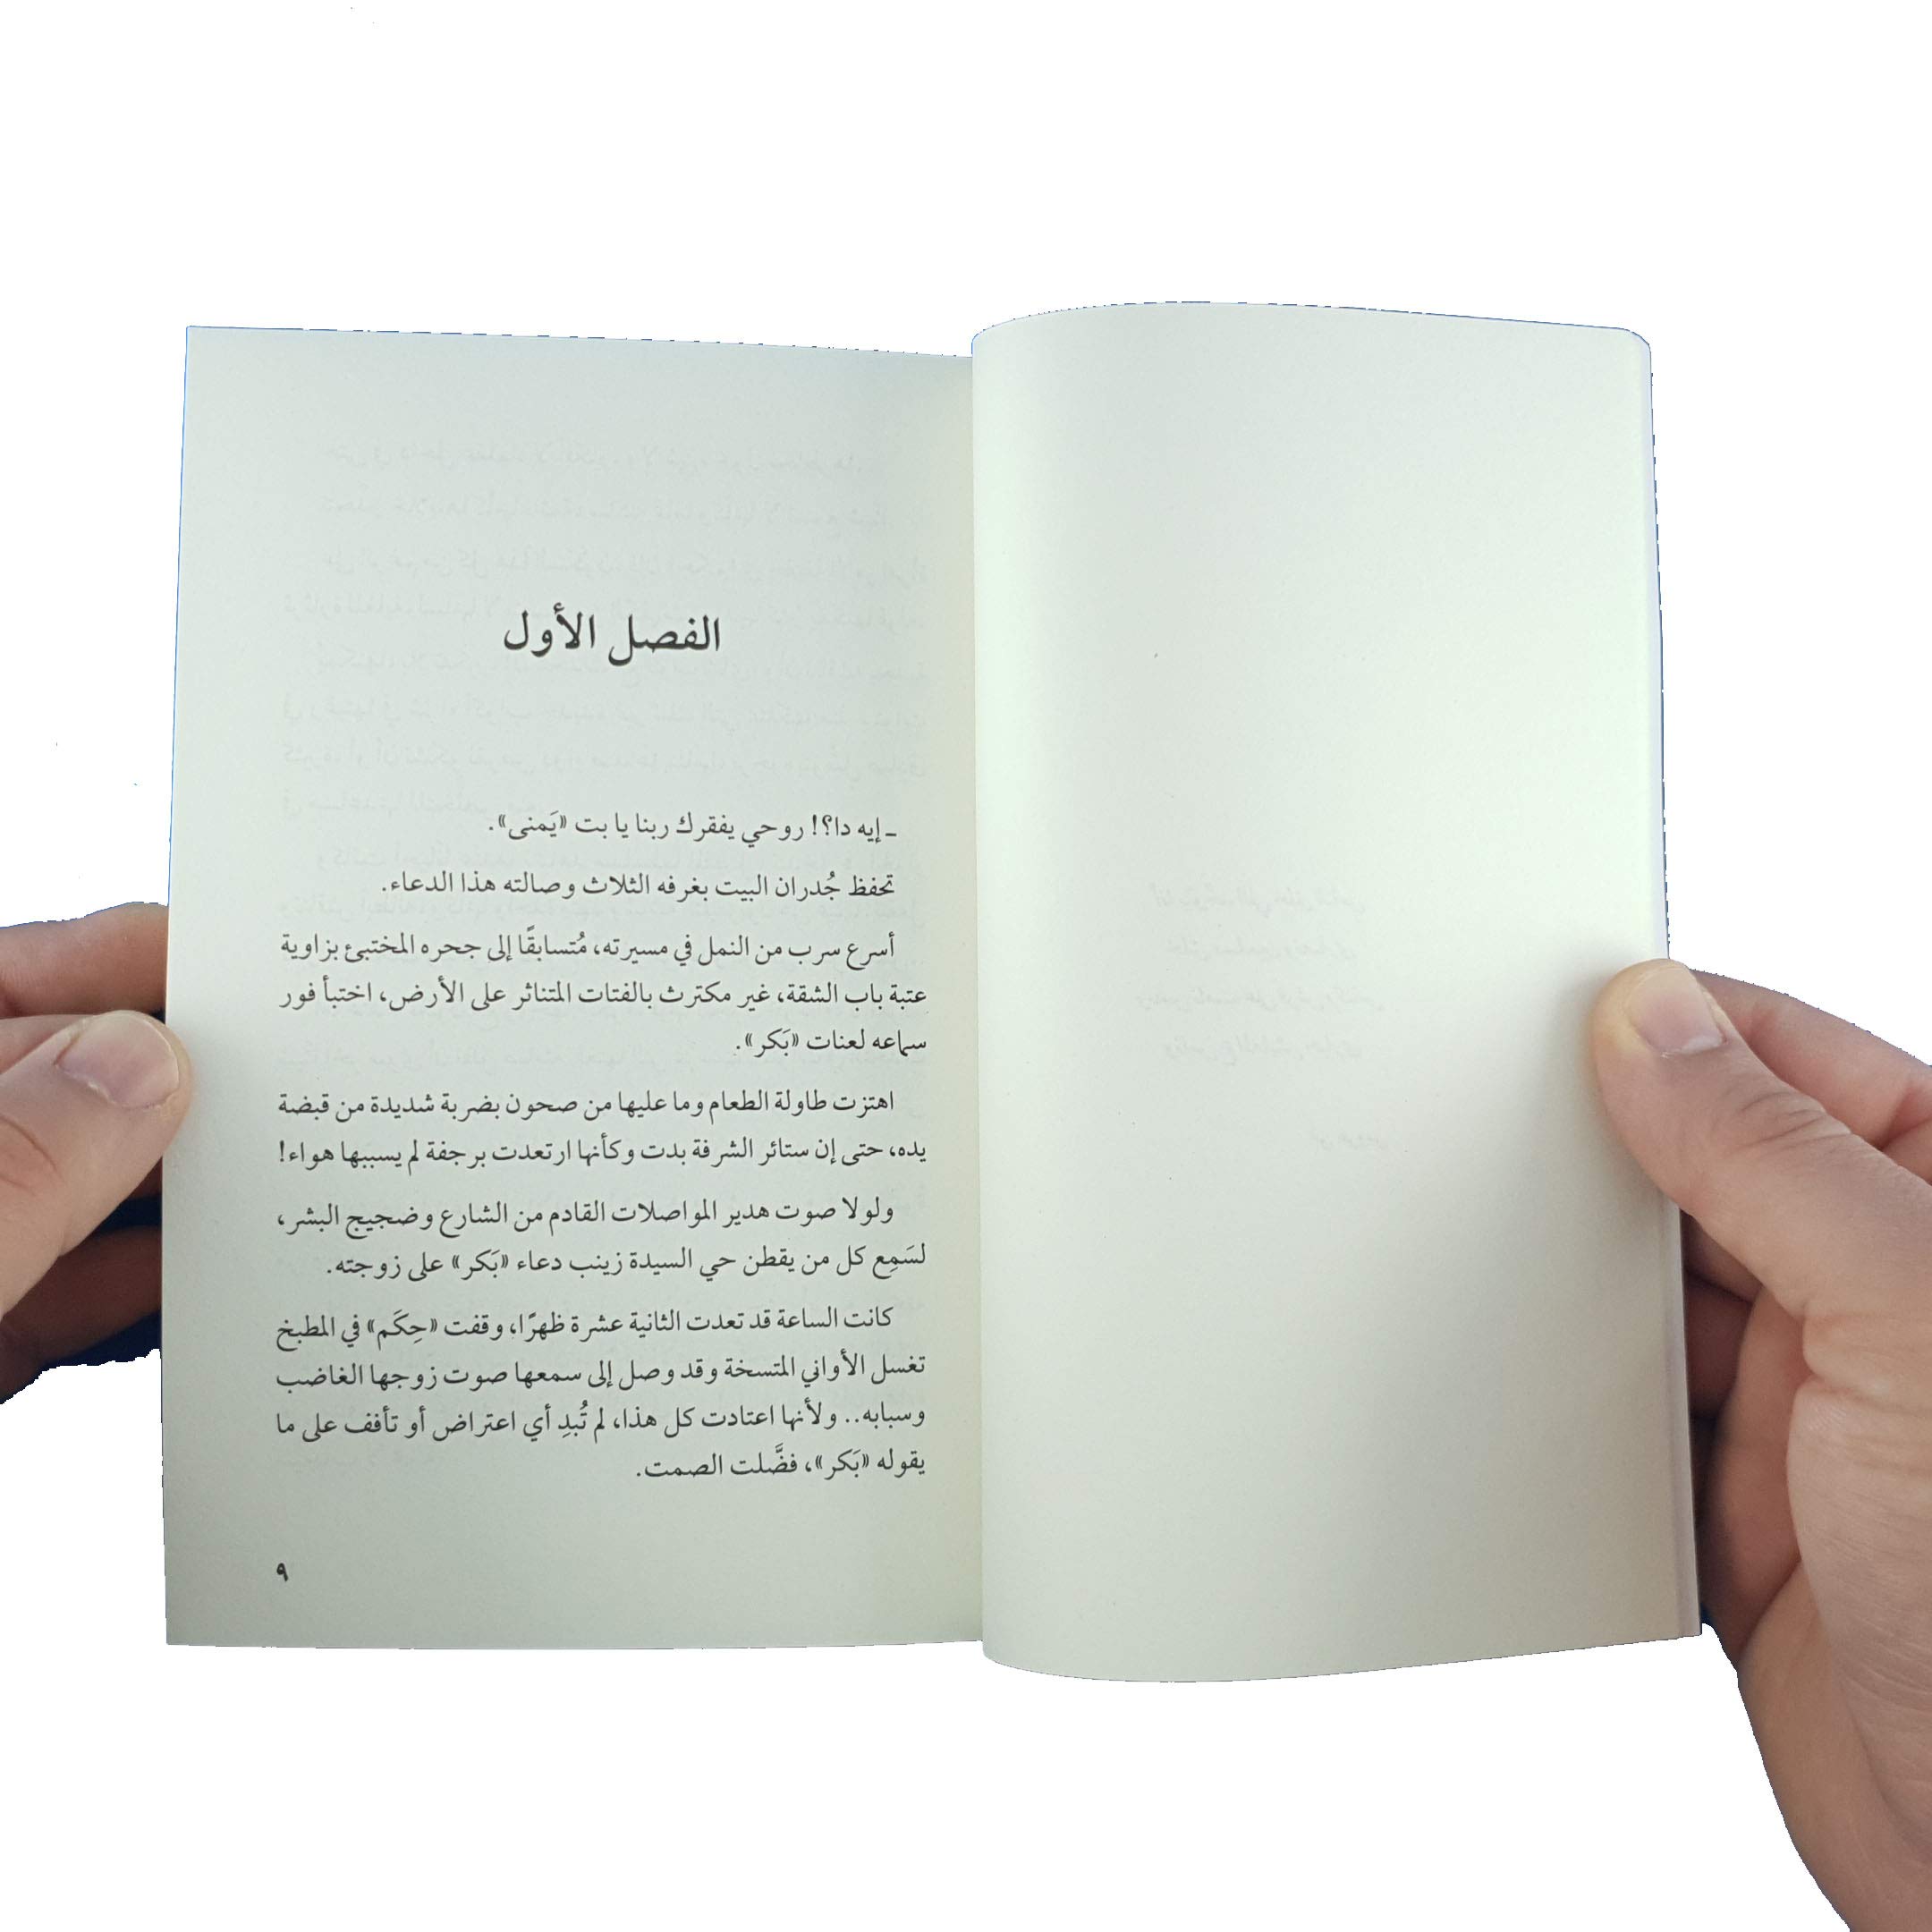 الفصل الأول
ـ إيه دا؟! روحي يفقرك ربنا يا بت «يَمنى».
تحفظ جُدران البيت بغرفه الثلاث وصالته هذا الدعاء.
أسرع سرب من النمل في مسيرته، مُتسابقًا إلى جحره المختبئ بزاوية
عتبة باب الشقة، غير مكترث بالفتات المتناثر على الأرض، اختبأ فور
سماعه لعنات «بَكر».
اهتزت طاولة الطعام وما عليها من صحون بضربة شديدة من قبضة
يده، حتى إن ستائر الشرفة بدت وكأنها ارتعدت برجفة لم يسببها هواء!
ولولا صوت هدير المواصلات القادم من الشارع وضجيج البشر،
لسَمِع كل من يقطن حي السيدة زينب دعاء «بَكر» على زوجته.
كانت الساعة قد تعدت الثانية عشرة ظهرًا، وقفت «حِكَم» في المطبخ
تغسل الأواني المتسخة وقد وصل إلى سمعها صوت زوجها الغاضب
وسبابه.. ولأنها اعتادت كل هذا، لم تُبدِ أي اعتراض أو تأفف على ما
يقوله «بَكر»، فضَّلت الصمت.
٩